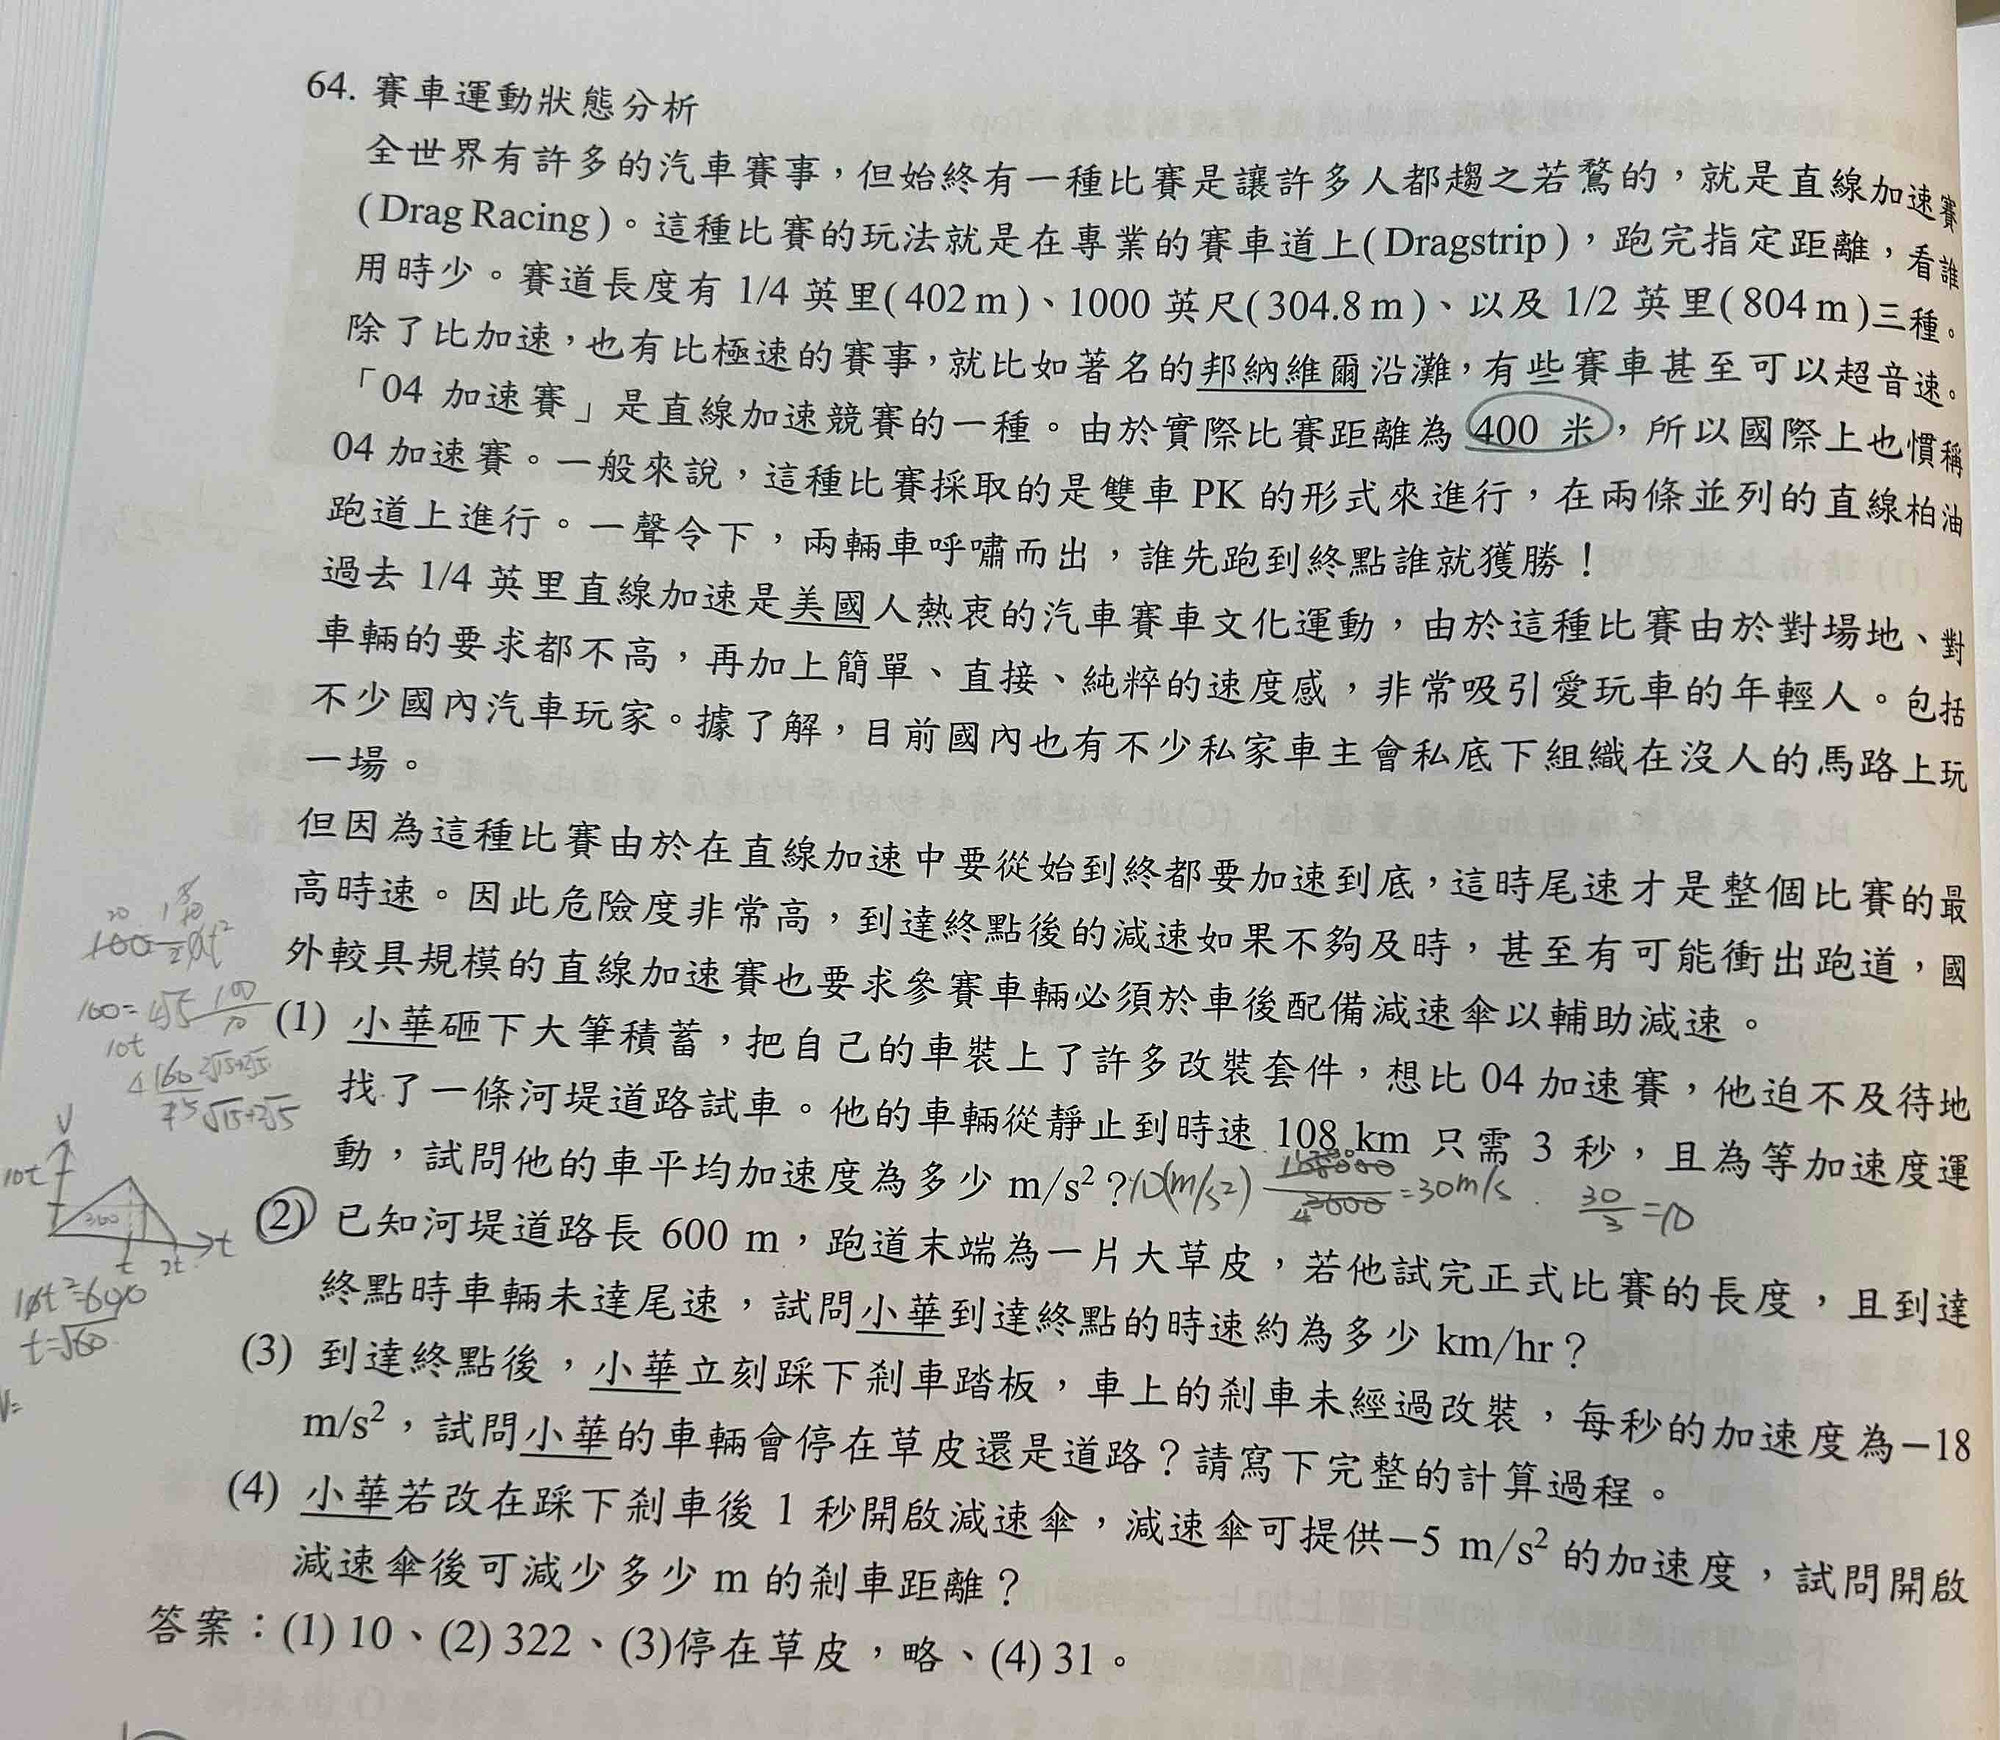 64. 賽車運動狀態分析
全世界有許多的汽車賽事，但始終有一種比賽是讓許多人都趨之若鶩的，就是直線加速賽
(Drag Racing)。這種比賽的玩法就是在專業的賽車道上(Dragstrip)，跑完指定距離，看誰
用時少。賽道長度有 1/4 英里(402 m)、1000 英尺(304.8 m)、以及 1/2 英里(804 m)三種。
除了比加速，也有比極速的賽事，就比如著名的邦納維爾沿灘，有些賽車甚至可以超音速。
「04 加速賽」是直線加速競賽的一種。由於實際比賽距離為 400 米，所以國際上也慣稱
04 加速賽。一般來說，這種比賽採取的是雙車 PK 的形式來進行，在兩條並列的直線柏油
跑道上進行。一聲令下，兩輛車呼嘯而出，誰先跑到終點誰就獲勝！
過去 1/4 英里直線加速是美國人熱衷的汽車賽車文化運動，由於這種比賽由於對場地、對
車輛的要求都不高，再加上簡單、直接、純粹的速度感，非常吸引愛玩車的年輕人。包括
不少國內汽車玩家。據了解，目前國內也有不少私家車主會私底下組織在沒人的馬路上玩
一場。
但因為這種比賽由於在直線加速中要從始到終都要加速到底，這時尾速才是整個比賽的最
高時速。因此危險度非常高，到達終點後的減速如果不夠及時，甚至有可能衝出跑道，國
外較具規模的直線加速賽也要求參賽車輛必須於車後配備減速傘以輔助減速。
(1) 小華砸下大筆積蓄，把自己的車裝上了許多改裝套件，想比 04 加速賽，他迫不及待地
找了一條河堤道路試車。他的車輛從靜止到時速 108 km 只需 3 秒，且為等加速度運
動，試問他的車平均加速度為多少 m/s²？10(m/s²) 108000/3600=30m/s. 30/3=10
(2) 已知河堤道路長 600 m，跑道末端為一片大草皮，若他試完正式比賽的長度，且到達
終點時車輛未達尾速，試問小華到達終點的時速約為多少 km/hr？
(3) 到達終點後，小華立刻踩下剎車踏板，車上的剎車未經過改裝，每秒的加速度為−18
m/s²，試問小華的車輛會停在草皮還是道路？請寫下完整的計算過程。
(4) 小華若改在踩下剎車後 1 秒開啟減速傘，減速傘可提供−5 m/s² 的加速度，試問開啟
減速傘後可減少多少 m 的剎車距離？
答案：(1) 10、(2) 322、(3)停在草皮，略、(4) 31。
V
10t
t
t 2t
10t²=600
t=√60
V=